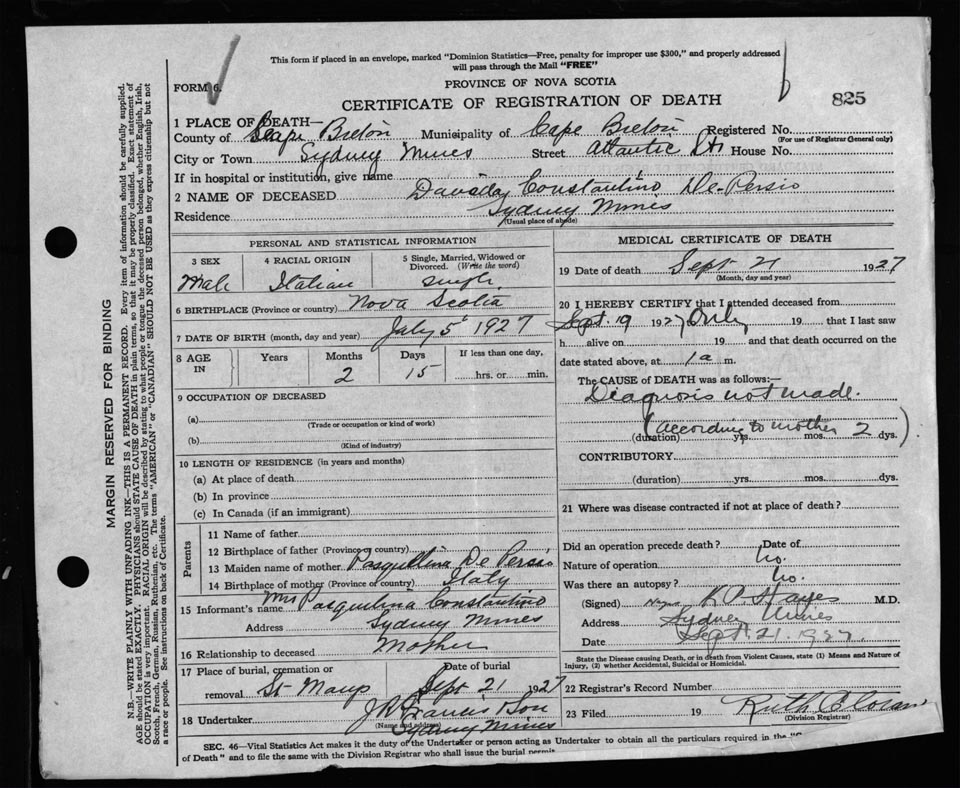 This form if placed in an envelope, marked "Dominion Statistics—Free, penalty for improper use $300," and properly addressed
will pass through the Mail "FREE"
FORM 6.
PROVINCE OF NOVA SCOTIA
CERTIFICATE OF REGISTRATION OF DEATH
825
1 PLACE OF DEATH—
County of Cape Breton Municipality of Cape Breton Registered No.
(For use of Registrar General only)
City or Town Sydney Mines Street Atlantic St. House No.
If in hospital or institution, give name
2 NAME OF DECEASED Constantino De-Persio
Residence Sydney Mines
(Usual place of abode)
PERSONAL AND STATISTICAL INFORMATION
3 SEX 4 RACIAL ORIGIN 5 Single, Married, Widowed or Divorced. (Write the word)
Male Italian Single
6 BIRTHPLACE (Province or country) Nova Scotia
7 DATE OF BIRTH (month, day and year) July 5 1927
8 AGE IN Years Months Days If less than one day,
2 15 hrs. or min.
9 OCCUPATION OF DECEASED
(a)
(Trade or occupation or kind of work)
(b)
(Kind of industry)
10 LENGTH OF RESIDENCE (in years and months)
(a) At place of death
(b) In province
(c) In Canada (if an immigrant)
Parents
11 Name of father
12 Birthplace of father (Province or country)
13 Maiden name of mother Pasquelina De Persio
14 Birthplace of mother (Province or country) Italy
15 Informant's name Mrs Pasquelina Constantino
Address Sydney Mines
16 Relationship to deceased Mother
17 Place of burial, cremation or removal Date of burial
St Marys Sept 21 1927
18 Undertaker Francis
(Name and address)
Sydney Mines
MEDICAL CERTIFICATE OF DEATH
19 Date of death Sept 21 1927
(Month, day and year)
20 I HEREBY CERTIFY that I attended deceased from
Sept. 19 1927 Only 19 that I last saw
h alive on 19 and that death occurred on the
date stated above, at 1 a m.
The CAUSE of DEATH was as follows:—
Diagnosis not made.
(According to mother 2
(duration) yrs. mos. dys.)
CONTRIBUTORY
(duration) yrs. mos. dys.
21 Where was disease contracted if not at place of death?
Did an operation precede death? Date of
Nature of operation No.
Was there an autopsy? No.
(Signed) Hayes M.D.
Address Sydney Mines
Date Sept. 21. 1927.
State the Disease causing Death, or in death from Violent Causes, state (1) Means and Nature of
Injury, (2) whether Accidental, Suicidal or Homicidal.
22 Registrar's Record Number
23 Filed 19 Ruth
(Division Registrar)
SEC. 46—Vital Statistics Act makes it the duty of the Undertaker or person acting as Undertaker to obtain all the particulars required in the
of Death" and to file the same with the Division Registrar who shall issue the burial permit
MARGIN RESERVED FOR BINDING
N.B.—WRITE PLAINLY WITH UNFADING INK—THIS IS A PERMANENT RECORD. Every item of information should be carefully supplied.
AGE should be stated EXACTLY. PHYSICIANS should STATE CAUSE OF DEATH in plain terms, so that it may be properly classified. Exact statement of
OCCUPATION is very important. RACIAL ORIGIN will be described by stating to what people or tongue the deceased person belonged, whether English, Irish,
Scotch, French, German, Russian, Ruthenian, etc. The terms "AMERICAN" or "CANADIAN" SHOULD NOT BE USED as they express citizenship but not
a race or people. See instructions on back of Certificate.